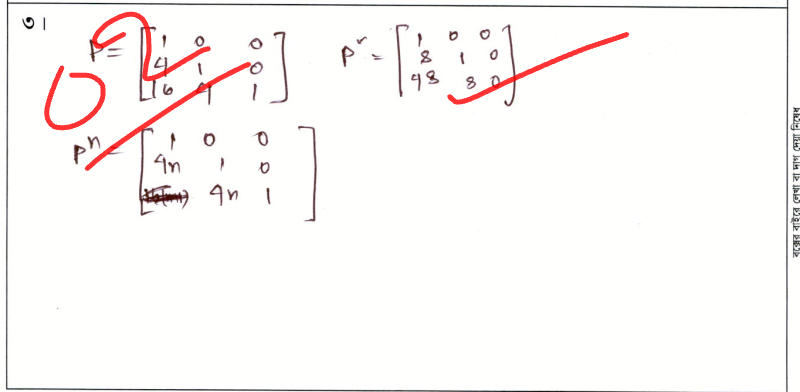 ৩।
P = [1 0 0
4 1 0
16 4 1]
P² = [1 0 0
8 1 0
48 8 0]
Pⁿ = [1 0 0
4n 1 0
4n 1]
বক্সের বাইরে লেখা বা দাগ দেয়া নিষেধ